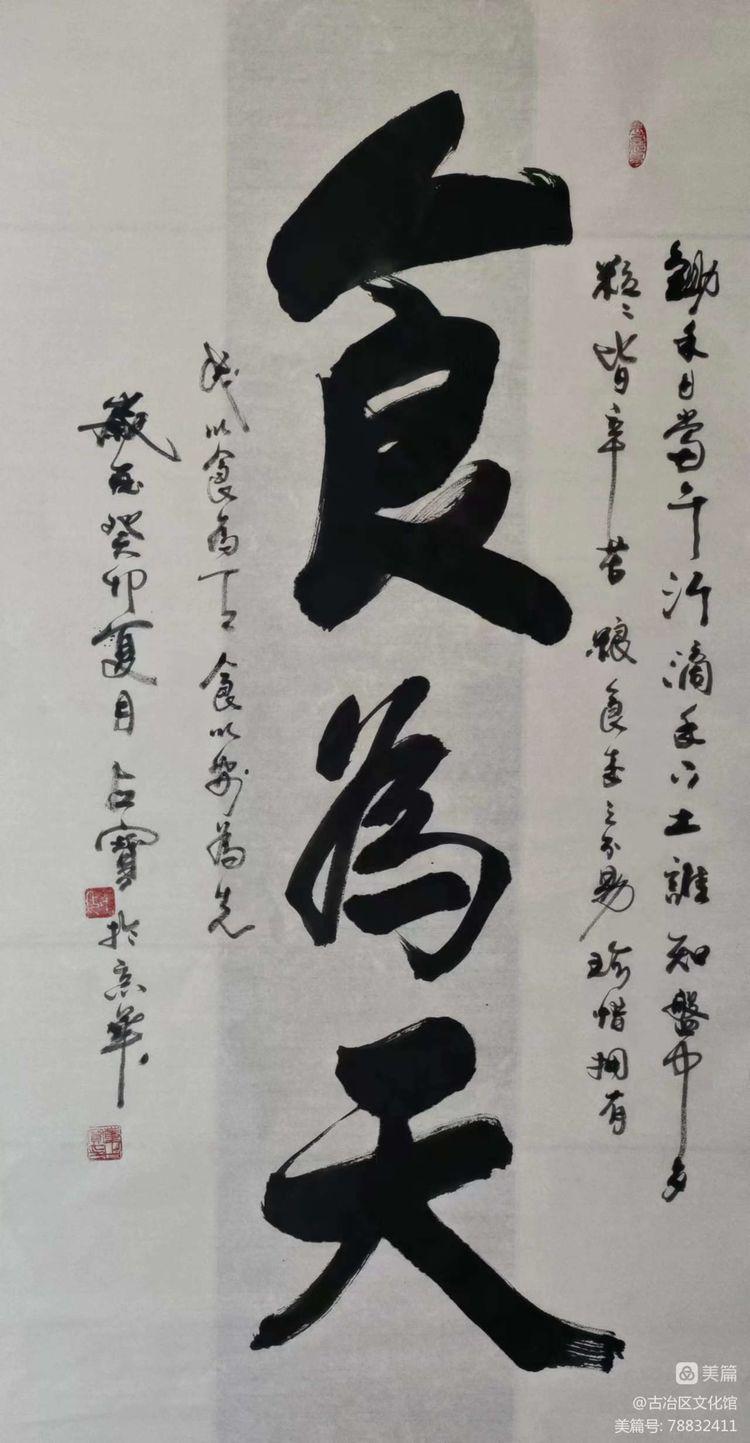 鋤禾日當午汗滴禾下土誰知盤中
粒々皆辛苦 粮食来之不易 珍惜拥有
食為天
以食為 食以安為先
歲在癸卯夏月占寶於京華
美篇
@古冶区文化馆
美篇号: 78832411